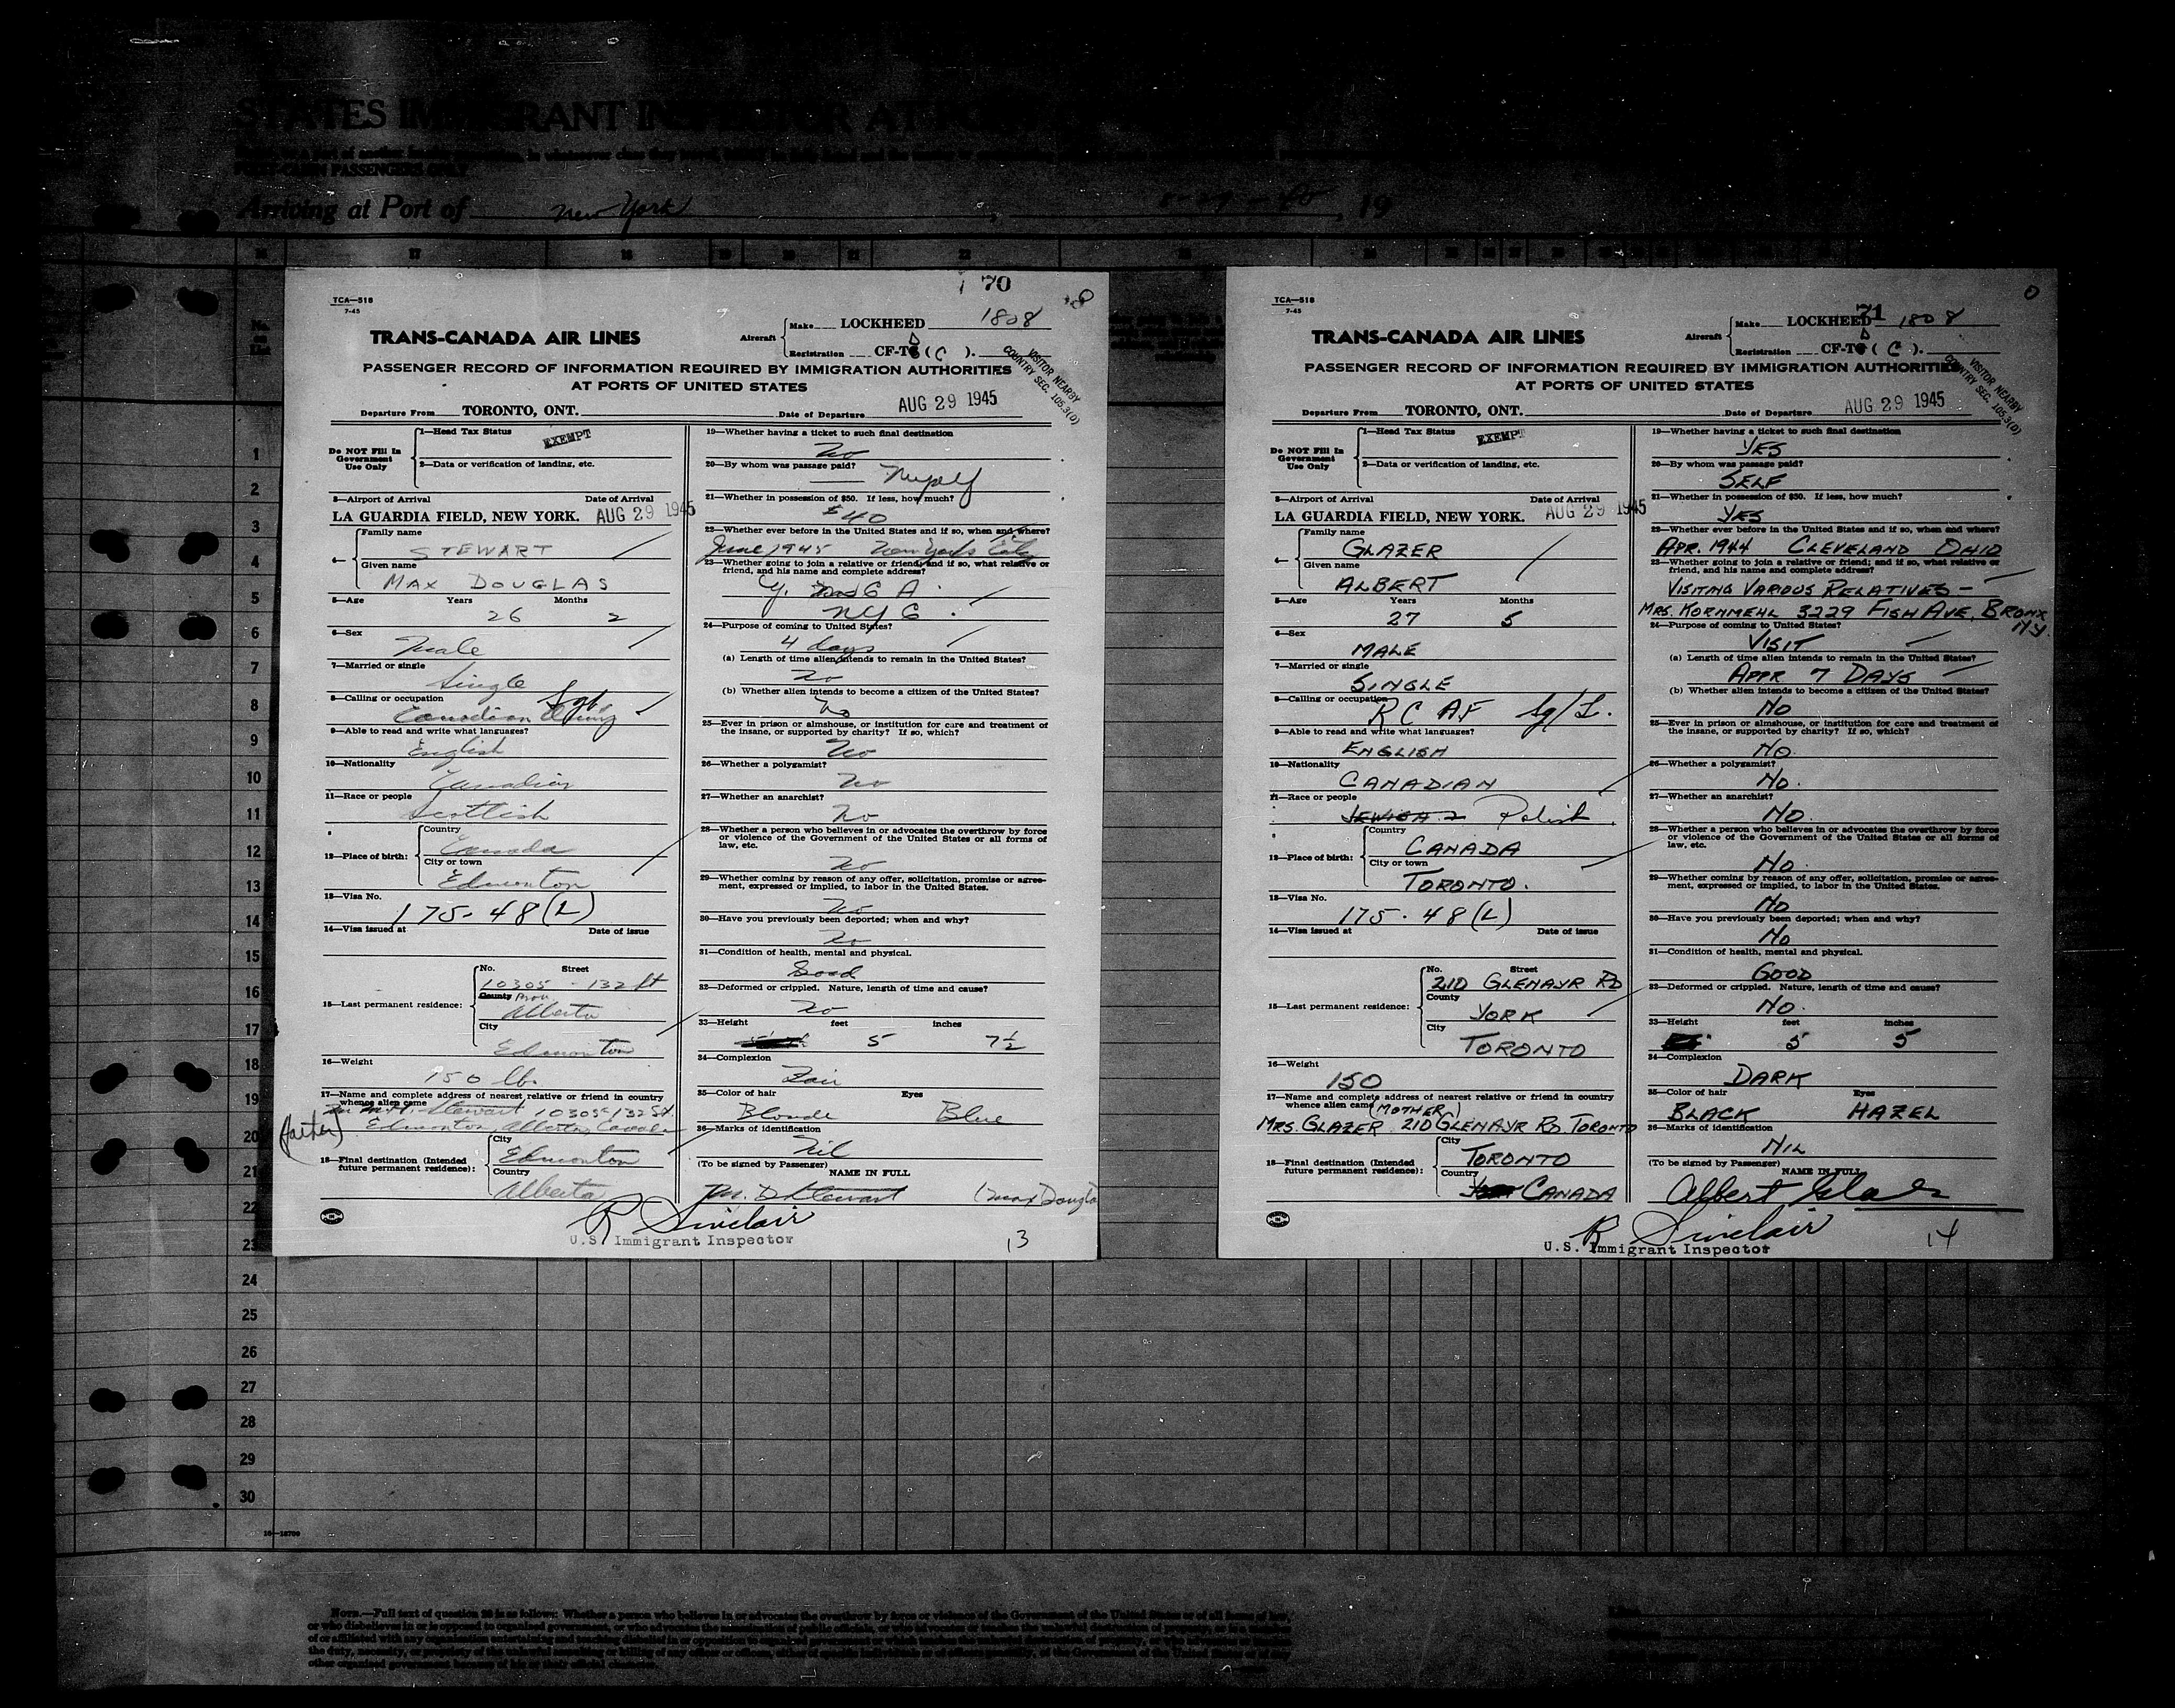 STATES IMMIGRANT INSPECTOR AT PORT
Arriving at Port of New York, 19
70
TCA—518
7-45
TRANS-CANADA AIR LINES
Aircraft
Make LOCKHEED 1808
Registration CF-T D ( C ).
VISITOR NEARBY
COUNTRY SEC. 105.3(D)
PASSENGER RECORD OF INFORMATION REQUIRED BY IMMIGRATION AUTHORITIES
AT PORTS OF UNITED STATES
Departure From TORONTO, ONT. Date of Departure AUG 29 1945
Do NOT Fill In
Government
Use Only
1—Head Tax Status EXEMPT
2—Data or verification of landing, etc.
3—Airport of Arrival Date of Arrival
LA GUARDIA FIELD, NEW YORK. AUG 29 1945
4—
Family name
STEWART
Given name
MAX DOUGLAS
5—Age Years Months
26 2
6—Sex
Male
7—Married or single
Single
8—Calling or occupation Sgt.
Canadian Army
9—Able to read and write what languages?
English
10—Nationality
Canadian
11—Race or people
Scottish
12—Place of birth:
Country
Canada
City or town
Edmonton
13—Visa No.
175-48(L)
14—Visa issued at Date of issue
15—Last permanent residence:
No. Street
10305 - 132 St
County Prov.
Alberta
City
Edmonton
16—Weight
150 lb.
17—Name and complete address of nearest relative or friend in country
whence alien came
Stewart 10305-132 St.
(father) Edmonton, Alberta, Canada
18—Final destination (Intended
future permanent residence):
City
Edmonton
Country
Alberta
19—Whether having a ticket to such final destination
No
20—By whom was passage paid?
Myself
21—Whether in possession of $50. If less, how much?
$40
22—Whether ever before in the United States and if so, when and where?
June 1945 New York City
23—Whether going to join a relative or friend; and if so, what relative or
friend, and his name and complete address?
Y. M C A
NYC.
24—Purpose of coming to United States?
4 days
(a) Length of time alien intends to remain in the United States?
No
(b) Whether alien intends to become a citizen of the United States?
No
25—Ever in prison or almshouse, or institution for care and treatment of
the insane, or supported by charity? If so, which?
No
26—Whether a polygamist?
No
27—Whether an anarchist?
No
28—Whether a person who believes in or advocates the overthrow by force
or violence of the Government of the United States or all forms of
law, etc.
No
29—Whether coming by reason of any offer, solicitation, promise or agree-
ment, expressed or implied, to labor in the United States.
No
30—Have you previously been deported; when and why?
No
31—Condition of health, mental and physical.
Good
32—Deformed or crippled. Nature, length of time and cause?
No
33—Height feet inches
5 7½
34—Complexion
Fair
35—Color of hair Eyes
Blonde Blue
36—Marks of identification
Nil
(To be signed by Passenger)
NAME IN FULL
M. D Stewart (Max Douglas
R Sinclair
U.S. Immigrant Inspector
13
71
TCA—518
7-45
TRANS-CANADA AIR LINES
Aircraft
Make LOCKHEED 1808
Registration CF-T D ( C ).
VISITOR NEARBY
COUNTRY SEC. 105.3(D)
PASSENGER RECORD OF INFORMATION REQUIRED BY IMMIGRATION AUTHORITIES
AT PORTS OF UNITED STATES
Departure From TORONTO, ONT. Date of Departure AUG 29 1945
Do NOT Fill In
Government
Use Only
1—Head Tax Status EXEMPT
2—Data or verification of landing, etc.
3—Airport of Arrival Date of Arrival
LA GUARDIA FIELD, NEW YORK. AUG 29 1945
4—
Family name
GLAZER
Given name
ALBERT
5—Age Years Months
27 5
6—Sex
MALE
7—Married or single
SINGLE
8—Calling or occupation
RCAF Sg/L.
9—Able to read and write what languages?
ENGLISH
10—Nationality
CANADIAN
11—Race or people
JEWISH Polish
12—Place of birth:
Country
CANADA
City or town
TORONTO.
13—Visa No.
175-48(L)
14—Visa issued at Date of issue
15—Last permanent residence:
No. Street
21D GLENAYR RD
County
YORK
City
TORONTO
16—Weight
150
17—Name and complete address of nearest relative or friend in country
whence alien came (MOTHER)
MRS. GLAZER 21D GLENAYR RD. TORONTO
18—Final destination (Intended
future permanent residence):
City
TORONTO
Country
CANADA
19—Whether having a ticket to such final destination
YES
20—By whom was passage paid?
SELF
21—Whether in possession of $50. If less, how much?
YES
22—Whether ever before in the United States and if so, when and where?
APR. 1944 CLEVELAND OHIO
23—Whether going to join a relative or friend; and if so, what relative or
friend, and his name and complete address?
VISITING VARIOUS RELATIVES—
MRS. KORNMEHL 3229 FISH AVE, BRONX
NY.
24—Purpose of coming to United States?
VISIT
(a) Length of time alien intends to remain in the United States?
APPR 7 DAYS
(b) Whether alien intends to become a citizen of the United States?
NO
25—Ever in prison or almshouse, or institution for care and treatment of
the insane, or supported by charity? If so, which?
NO.
26—Whether a polygamist?
NO.
27—Whether an anarchist?
NO.
28—Whether a person who believes in or advocates the overthrow by force
or violence of the Government of the United States or all forms of
law, etc.
NO.
29—Whether coming by reason of any offer, solicitation, promise or agree-
ment, expressed or implied, to labor in the United States.
NO
30—Have you previously been deported; when and why?
NO
31—Condition of health, mental and physical.
GOOD
32—Deformed or crippled. Nature, length of time and cause?
NO.
33—Height feet inches
5 5
34—Complexion
DARK
35—Color of hair Eyes
BLACK HAZEL
36—Marks of identification
NIL
(To be signed by Passenger)
NAME IN FULL
Albert Glazer
R Sinclair
U.S. Immigrant Inspector
14
1
2
3
4
5
6
7
8
9
10
11
12
13
14
15
16
17
18
19
20
21
22
23
24
25
26
27
28
29
30